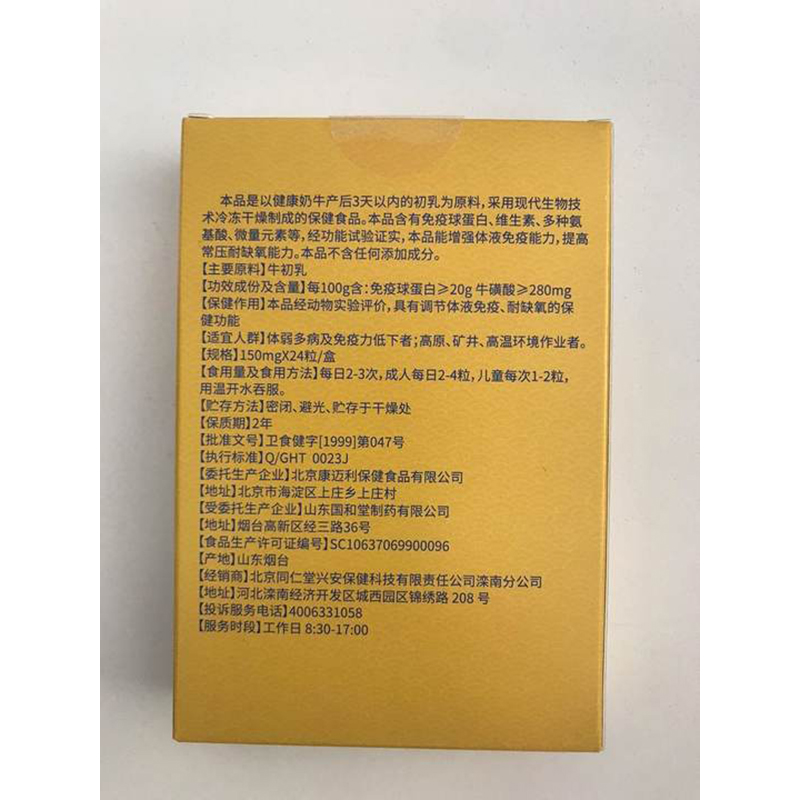 本品是以健康奶牛产后3天以内的初乳为原料，采用现代生物技
术冷冻干燥制成的保健食品。本品含有免疫球蛋白、维生素、多种氨
基酸、微量元素等，经功能试验证实，本品能增强体液免疫能力，提高
常压耐缺氧能力。本品不含任何添加成分。
【主要原料】牛初乳
【功效成份及含量】每100g含：免疫球蛋白≥20g 牛磺酸≥280mg
【保健作用】本品经动物实验评价，具有调节体液免疫、耐缺氧的保
健功能
【适宜人群】体弱多病及免疫力低下者；高原、矿井、高温环境作业者。
【规格】150mgX24粒/盒
【食用量及食用方法】每日2-3次，成人每日2-4粒，儿童每次1-2粒，
用温开水吞服。
【贮存方法】密闭、避光、贮存于干燥处
【保质期】2年
【批准文号】卫食健字[1999]第047号
【执行标准】Q/GHT 0023J
【委托生产企业】北京康迈利保健食品有限公司
【地址】北京市海淀区上庄乡上庄村
【受委托生产企业】山东国和堂制药有限公司
【地址】烟台高新区经三路36号
【食品生产许可证编号】SC10637069900096
【产地】山东烟台
【经销商】北京同仁堂兴安保健科技有限责任公司滦南分公司
【地址】河北滦南经济开发区城西园区锦绣路 208 号
【投诉服务电话】4006331058
【服务时段】工作日 8:30-17:00